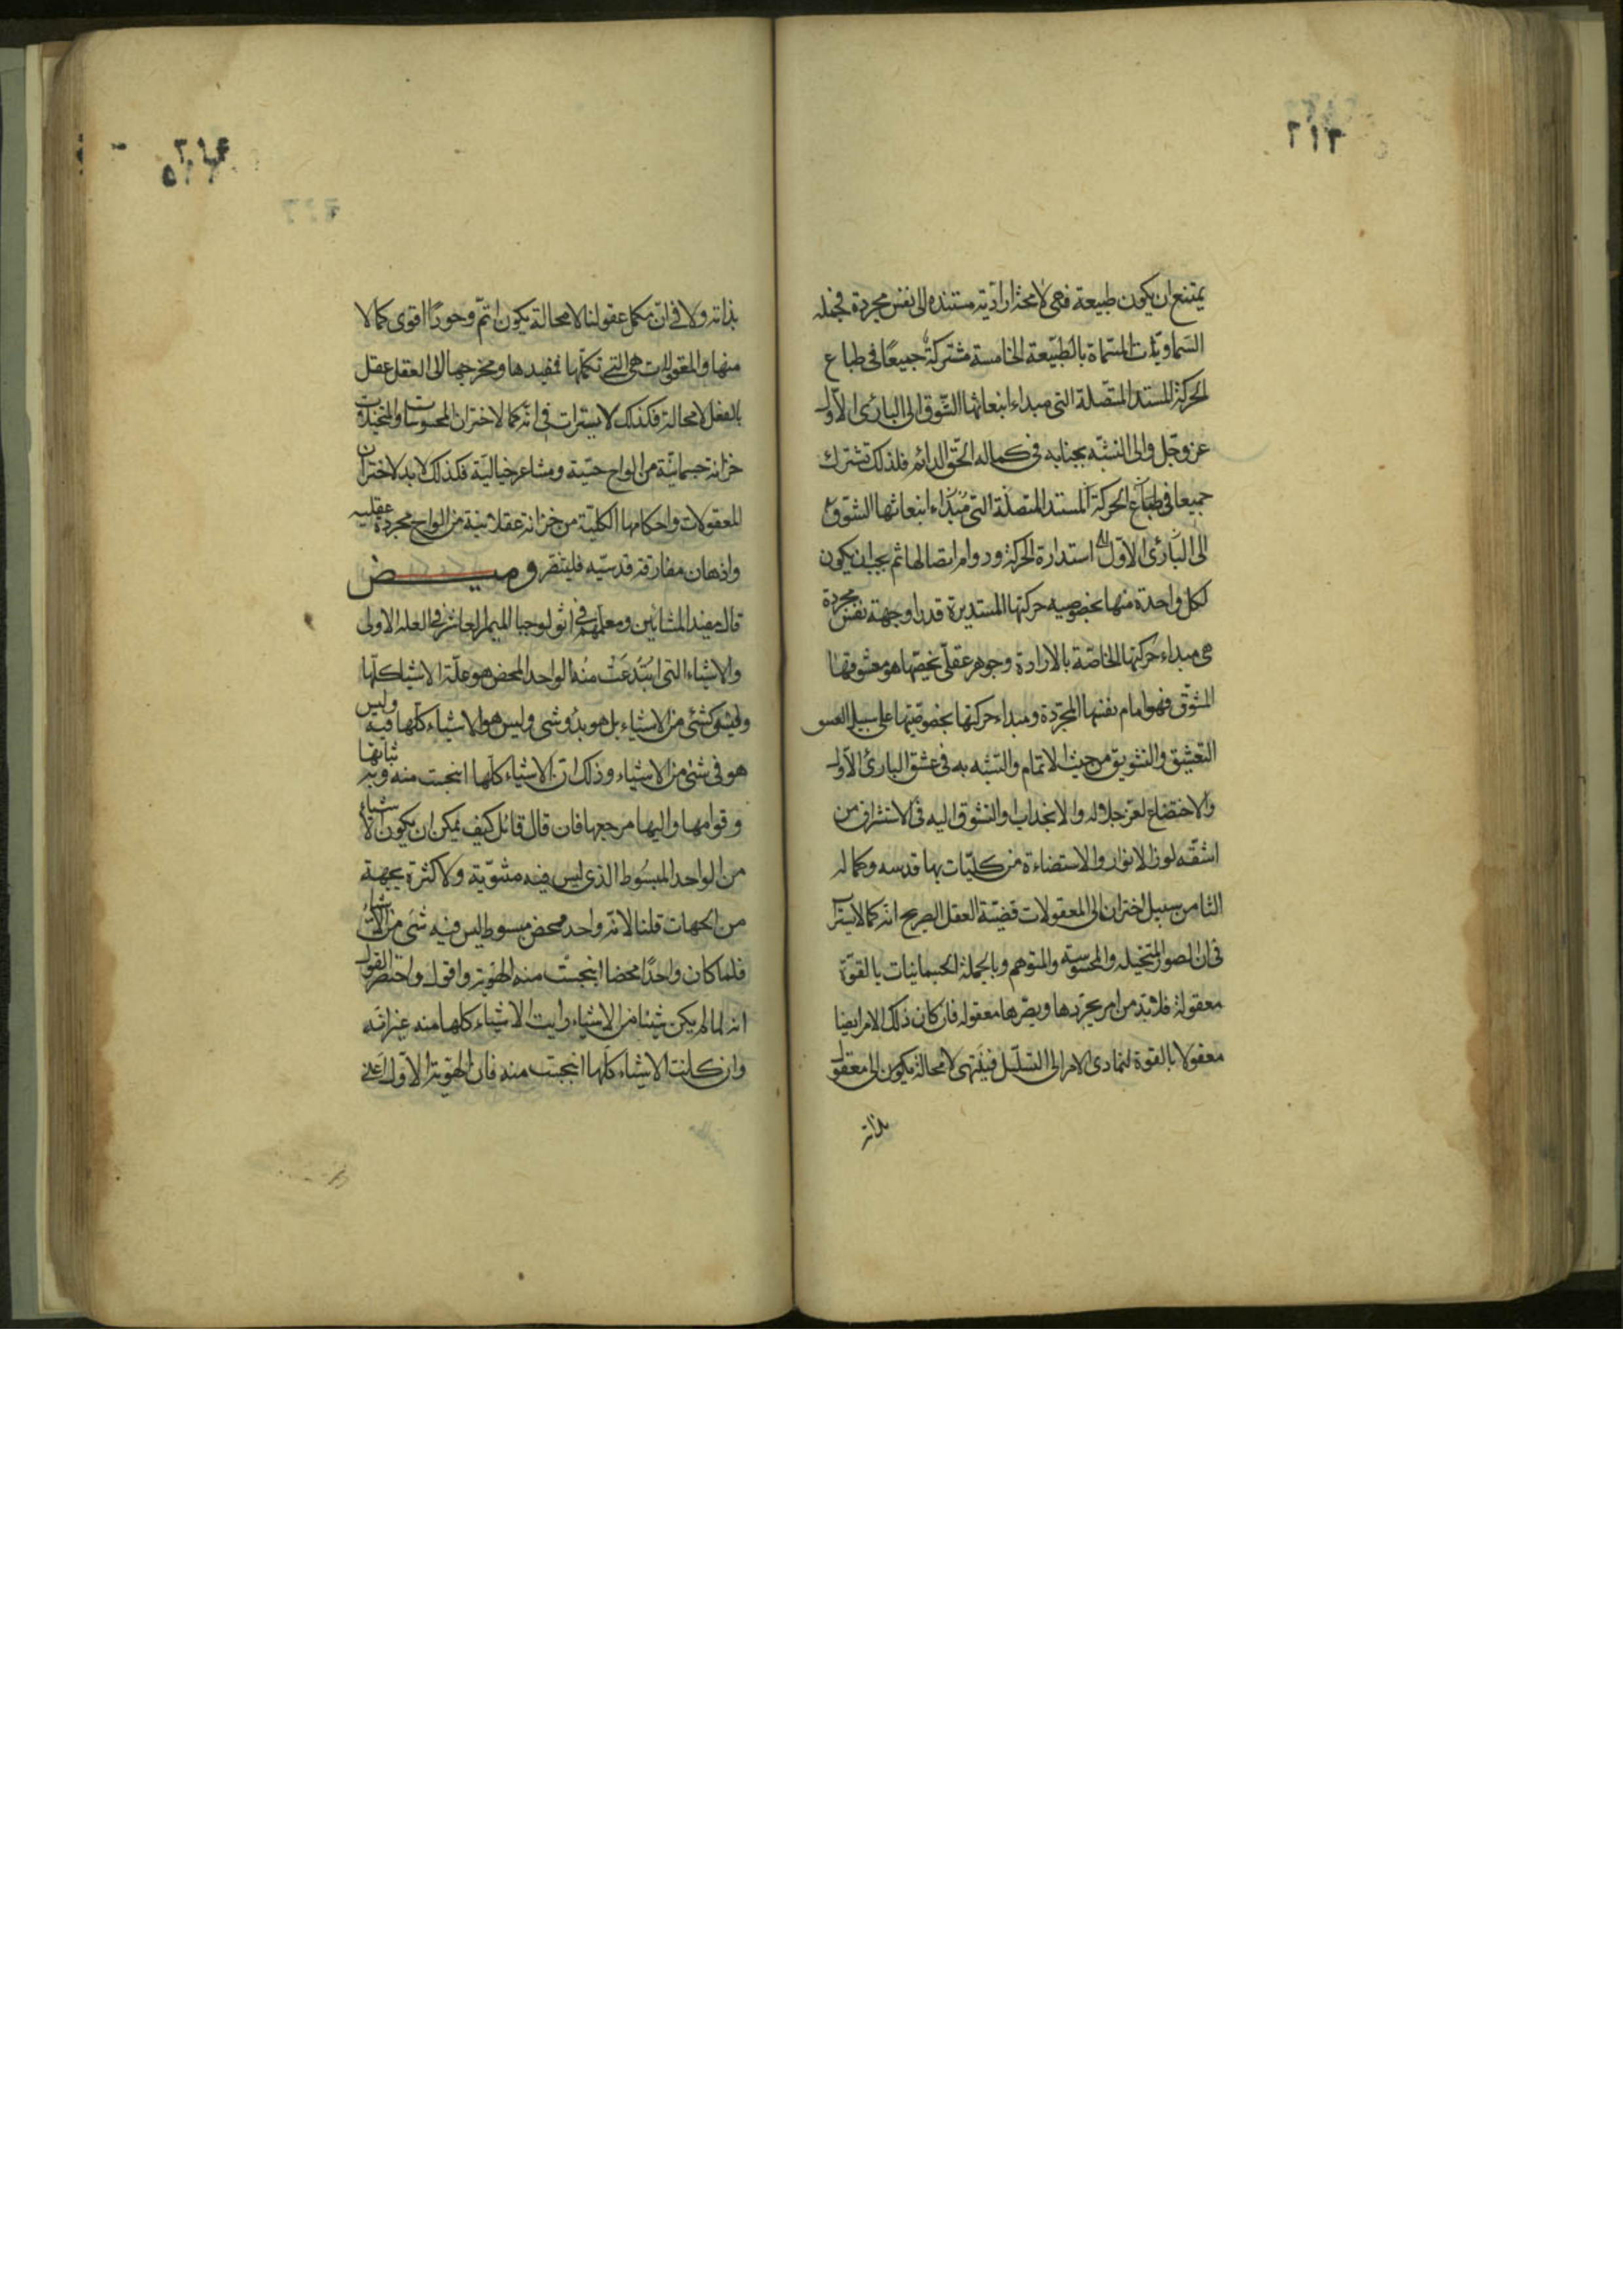 ٢١٣
يمتنع ان يكون طبيعة فهى لامحة ارادية مستنده الى نفس مجردة فجمله
السماويات المسماة بالطبيعة الخامسة مشتركة جميعًا فى طباع
الحركة المستديرة المتصلة التى مبداء انبعاثها الشوق الى البارئ الاول
عز وجل والى التشبه بجنابه فى كماله الحق الدائم فلذلك تشترك
جميعا فى طباع الحركة المستديرة المتصلة التى مبداء انبعاثها الشوق
الى البارئ الاول استدارة الحركة ودوام اتصالها ثم يجب ان يكون
لكل واحدة منها بخصوصيه حركتها المستديرة قدرا وجهة نفس مجردة
هى مبداء حركتها الخاصة بالارادة وجوهر عقلى يخصها هو معشوقها
المشوق فهو امام نفسها المجردة ومبداء حركتها بخصوصيتها على سبيل
التعشيق والتشويق من حيث الائتمام والتشبه به فى عشق البارئ الاول
والاختضاع لعز جلاله والانجذاب والتشوق اليه فى الاستشراق من
اشعة نور الانوار والاستضاءة من بها قدسه وكماله
الثامن سبيل اختزان المعقولات قضية العقل الصريح انه كما لا يستراب
فى ان الصور المتخيله والمحسوسة والمتوهم وبالجملة الجسمانيات بالقوة
معقولة فلا بد من امر يجردها ويصيرها معقوله فان كان ذلك الامر ايضا
معقولا بالقوة لتمادى الامر الى التسلسل فينتهى لامحالة يكون الى معقول
بذاته
٢١٤
بذاته ولا فى ان مكمل عقولنا لامحالة يكون اتم وجودًا اقوى كمالا
منها والمعقولات هى التى تكملها فمفيدها ومخرجها الى العقل عقل
بالفعل لامحالة فكذلك لا يستراب فى انه كما لاختزان المحسوسات والمتخيلات
خزانة جسمانية من الواح حسية ومشاعر خيالية فكذلك لا بد لاختزان
المعقولات واحكامها الكلية من خزانة عقلانية من الواح مجردة عقليه
واذهان مفارقة قدسيه فليتبصر وميض
قال مفيد المشائين ومعلمهم فى اثولوجيا الميمر العاشر فى العلة الاولى
والاشياء التى ابتدعت منه الواحد المحض هو علة الاشياء كلها
وليس كشئ من الاشياء بل هو بدو شى وليس هو الاشياء كلها فيه وليس
هو فى شئ من الاشياء وذلك ان الاشياء كلها انبجست منه وبه ثباتها
وقوامها واليها مرجعها فان قال قائل كيف يمكن ان يكون الاشياء
من الواحد المبسوط الذى ليس فيه مثنوية ولا كثرة بجهة
من الجهات قلنا لانه واحد محض مبسوط ليس فيه شئ من الاشياء
فلما كان واحدًا محضا انبجست منه الهوية واقول واختصر القول
انه لما لم يكن شيئا من الاشياء رايت الاشياء كلها منه غير انه
وان كانت الاشياء كلها انبجست منه فان الهوية الاول اعنى